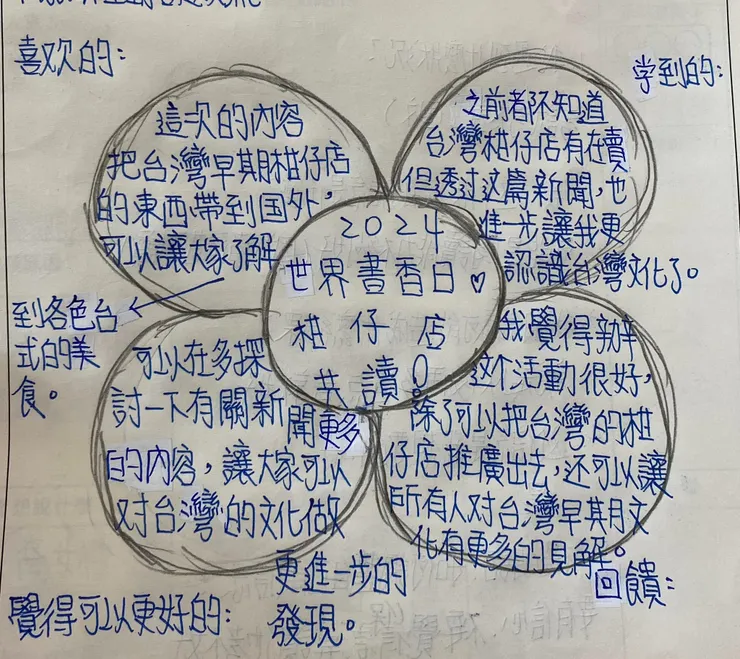 喜欢的：
這次的內容
把台灣早期柑仔店
的東西帶到国外，
可以讓大家了解
到各色台
式的美
食。
学到的：
之前都不知道
台灣柑仔店有在賣
但透过这篇新聞，也
進一步讓我更
認識台灣文化了。
2024
世界書香日♥
柑仔店
共讀！
可以在多探
討一下有關新聞更多
的內容，讓大家可以
对台灣的文化做
更進一步的
發現。
覺得可以更好的：
我覺得辦
这个活動很好，
除了可以把台灣的柑
仔店推廣出去，还可以讓
所有人对台灣早期文
化有更多的見解。
回饋：